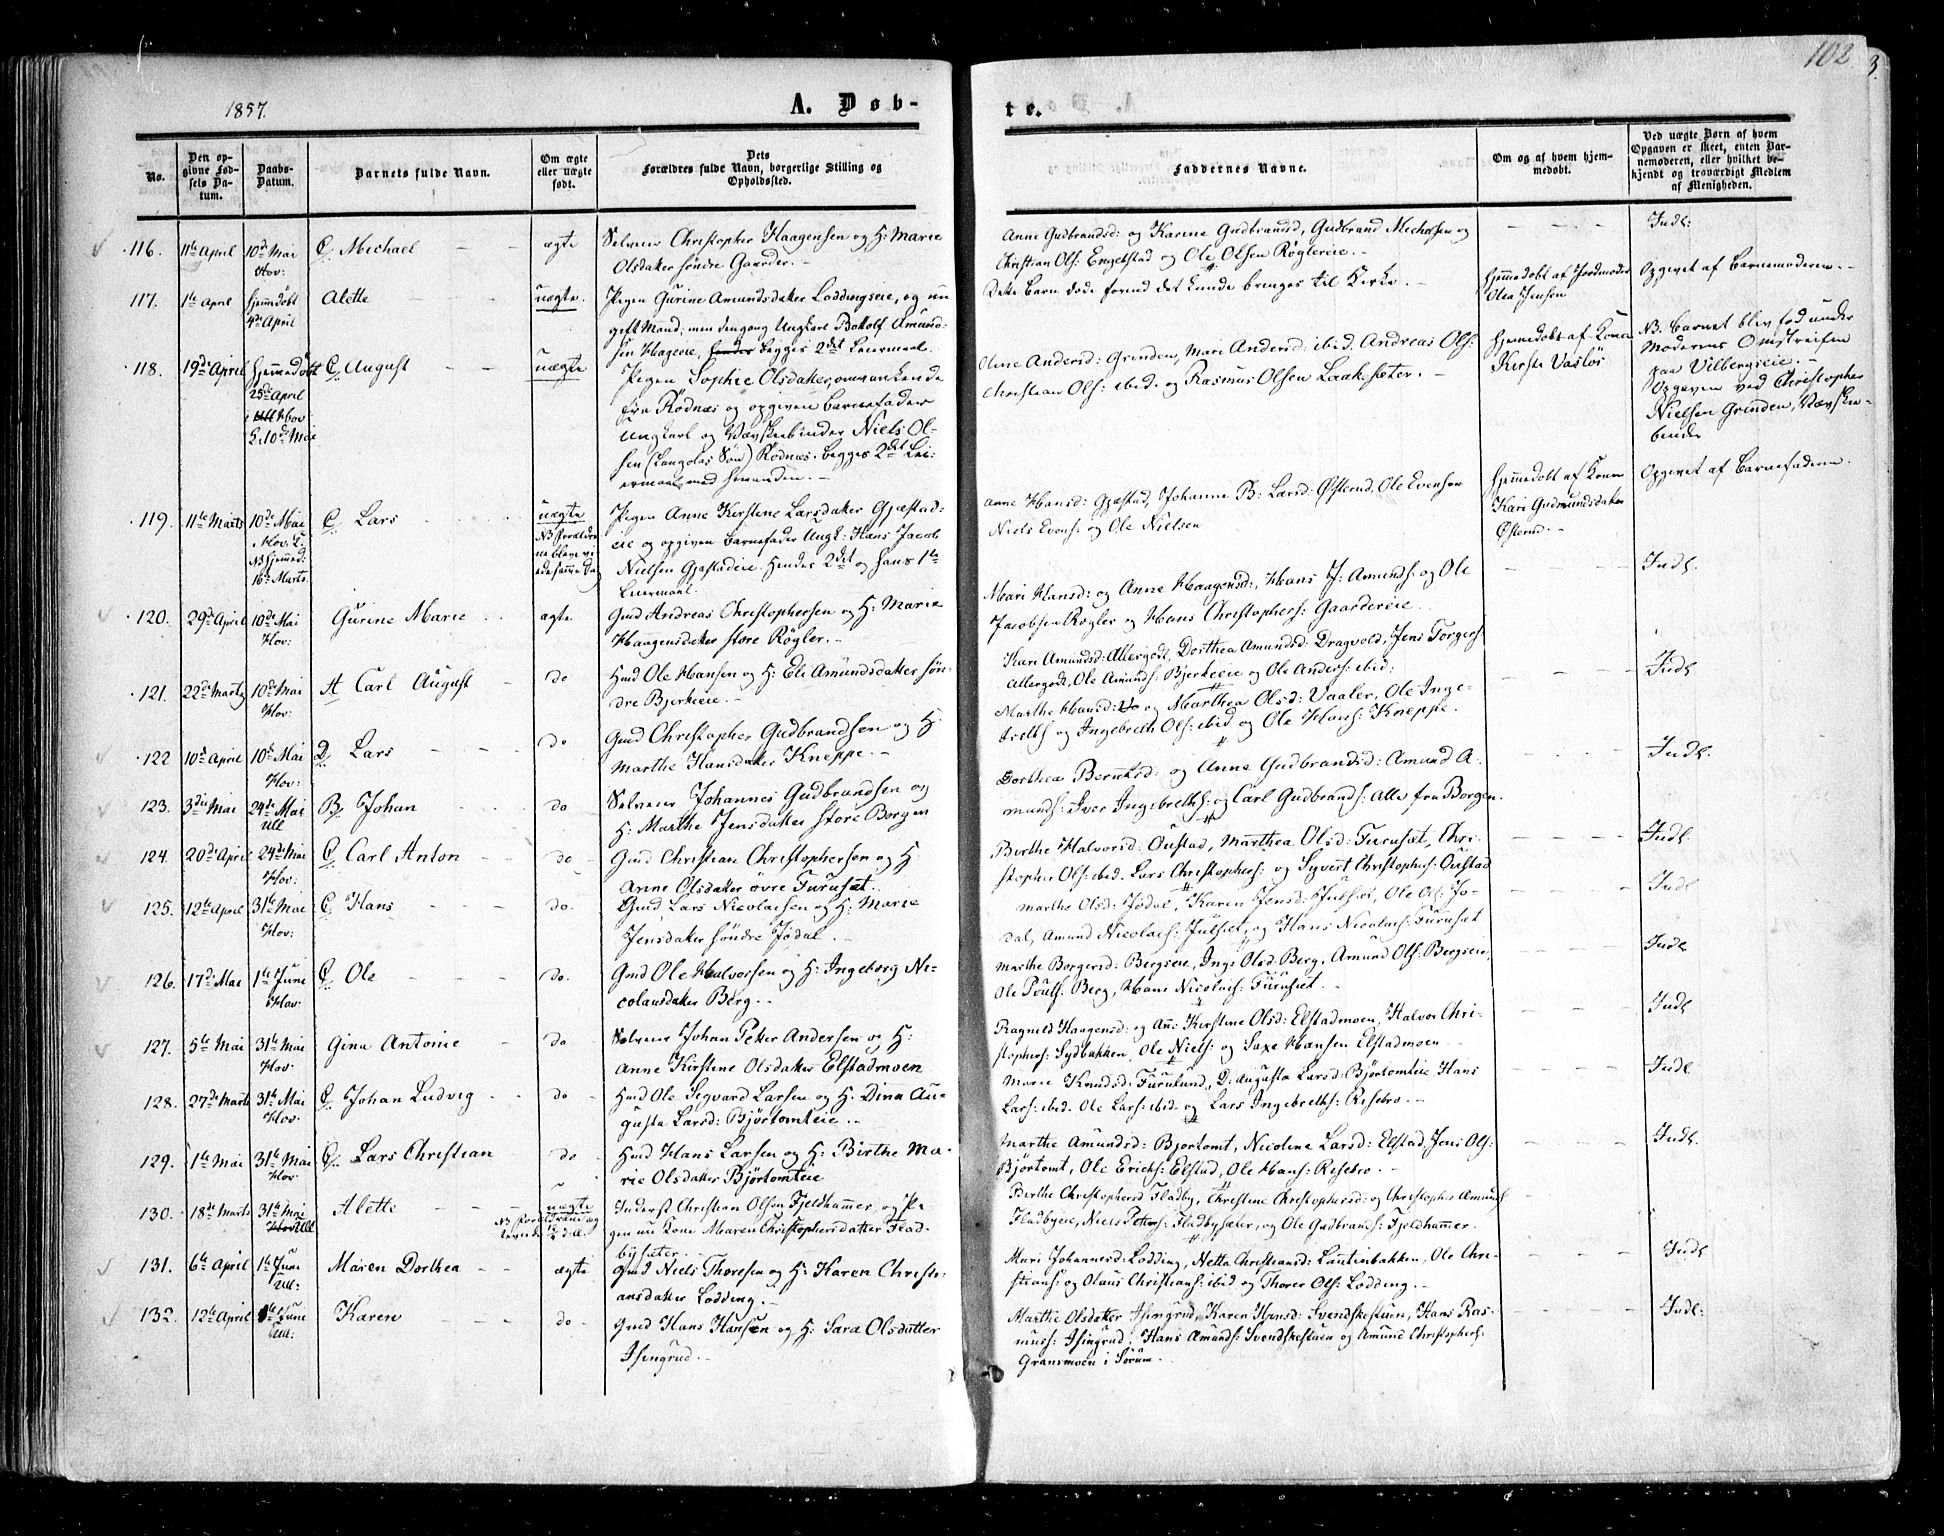 102
3.
1857.
A. Døb-
te.
No.
Den op-
givne Fød-
sels Da-
tum.
Daabs-
Datum.
Barnets fulde Navn.
Om ægte
eller uægte
født.
Dets
Forældres fulde Navn, borgerlige Stilling og
Opholdssted.
Faddernes Navne.
Om og af hvem hjem-
medøbt.
Ved uægte Børn af hvem
Opgaven er skeet, enten Bar-
nemoderen, eller hvilket be-
kjendt og troværdigt Medlem
af Menigheden.
116. 11te April 10de Mai Hov: C. Michael ægte
Selveier Christopher Haagensen og H: Marie
Olsdatter søndre Gaarder.
Anne Gudbrandsd: og Karine Gudbrandsd, Gudbrand Michelsen og
Christian Ols: Engelstad og Ole Olsen Røglereie.
Indl:
117. 1te April Hjemmedøbt 4de April Alette uægte.
Pigen Gurine Amundsdatter Loddingseie, og nu
gift Mand, men dengang Ungkarl Bottolf Amund-
sen Hageeie, begges 2det Leiermaal.
Dette Barn døde forend det kunde bringes til Kirke.
Hjemmedøbt af Jordmoder
Olea Jensen
Opgivet af Barnemoderen.
118. 19de April Hjemmedøbt 25de April Hov 10de Mai C. August uægte
Pigen Sophie Olsdatter, omvankende
fra Rødnæs og opgiven Barnefader
Ungkarl og Vævskeebinder Niels Ol-
sen (Langolas Søn) Rødnæs. Begges 2det Lei-
ermaal med hinanden.
Oline Andersd: Grinden, Mari Andersd: ibid. Andreas Ols:
Christian Ols: ibid. og Rasmus Olsen Laakesæter.
Hjemmedøbt af Kone
Kirste Vasløs
NB. Barnet blev fød under
Moderens Omstreifen
paa Vilbergseie.
Opgiven ved Christopher
Nielsen Grinden, Vævskee-
binder
119. 11te Marts 10de Mai Hov. NB hjemmed: 16de Marts. C. Lars uægte
NB Forældre
ne bleve vi
ede samme Dag
Pigen Anne Kirstine Larsdatter Gjæstad-
eie og opgiven Barnefader Ungk: Hans Jacob
Nielsen Gjæstadeie. Hendes 2det og hans 1te
Leiermaal.
Anne Hansd: Gjæstad, Johanne B: Larsd: Østerud, Ole Evensen
Niels Evens: og Ole Nielsen
Hjemmedøbt af Kone
Kari Gudmundsdatter
Østerud.
Opgivet af Barnefaderen.
120. 29de April 10de Mai Hov: Gurine Marie ægte
Gmd Andreas Christophersen og H: Marie
Haagensdatter store Røgler.
Mari Hansd: og Anne Haagensd:, Hans J: Amunds: og Ole
Jacobsen Røgler og Hans Christophers: Gaardereie.
Indl.
121. 22de Marts 10de Mai Hov: A Carl August do
Hmd Ole Hansen og H: Eli Amundsdatter søn-
dre Bjerkeeie.
Kari Amundsd: Allergodt, Dorthea Amundsd: Dragvold, Jens Torgers:
Allergodt, Ole Amunds: Bjerkeeie og Ole Anders: ibid:
Indl
122 10de April 10de Mai Hov: D. Lars do
Gmd Christopher Gudbrandsen og H:
Marthe Hansdatter Kneppe.
Marthe Hansd: og Marthea Olsd: Vaaler, Ole Inge-
breths og Ingebreth Ols: ibid og Ole Hans: Kneppe.
Indl.
123. 3die Mai 24de Mai Ull B. Johan do
Selveier Johannes Gudbrandsen og
H: Marthe Jensdatter store Borgen
Dorthea Berntsd: og Anne Gudbrandsd: Amund A-
munds: Iver Ingebreths: og Carl Gudbrands: alle fra Borgen.
124. 20de April 24de Mai Hov: C. Carl Anton do
Gmd Christian Christophersen og H
Anne Olsdatter øvre Furuset.
Birthe Halvorsd: Oustad, Marthea Olsd: Furuset, Chri-
stopher Ols: ibid. Lars Christophers: og Syvert Christophers: Oustad
Indl.
125. 12te April 31te Mai Hov: C Hans do.
Gmd Lars Nicolaisen og H: Marie
Jensdatter søndre Jødal.
Marthe Olsd: Jødal, Karen Jensd: Julset, Ole Ols: Jø-
dal, Amund Nicolais: Julset, og Hans Nicolais: Furuset
Indl
126. 17de Mai 1te Juni Hov: C. Ole do.
Gmd Ole Halvorsen og H: Ingeborg Ni-
colaisdatter Berg.
Marthe Borgersd: Bergseie, Inge Olsd: Berg, Amund Ols: Bergseie,
Ole Pouls: Berg, Hans Nicolais: Furuset.
Indl
127. 5te Mai 31te Mai Hov. Gina Antonie do
Selveier Johan Peter Andersen og H:
Anne Kirstine Olsdatter Elstadmoen
Ragnild Haagensd: og Anne Kirstine Olsd: Elstadmoen, Halvor Chri-
stophers: Sydbakken, Ole Niels: og Saxe Hansen Elstadmoen.
Indl
128. 27de Marts 31te Mai Hov. C. Johan Ludvig do
Hmd Ole Segvard Larsen og H: Dina Au-
gusta Larsd: Bjørtomteie.
Marie Knudsd: Furulund, D: Augusta Larsd: Bjørtomteie Hans
Lars: ibid. Ole Lars: ibid. og Lars Ingebreths: Risebro.
Indl
129. 1te Mai 31te Mai Hov. C. Lars Christian do
Hmd Hans Larsen og H: Birthe Ma-
rie Olsdatter Bjørtomteie
Marthe Amundsd: Bjørtomt, Nicoline Larsd: Elstad, Jens Ols:
Bjørtomt, Ole Ericks: Elstad, Ole Hans: Risebro.
Indl.
130. 18de Marts 31te Mai Ull Alette uægte
Inderst Christian Olsen Fjeldhammer, og Pi-
gen nu Kone Maren Christophersdatter Flad-
bysæter.
Birthe Christophersd Fladby, Christine Christophersd: og Christopher Amunds
Fladbyeie, Niels Peters: Fladbysæter, og Ole Gudbrands: Fjeldhammer.
131. 6te April 1te Juni Ull: Maren Dorthea ægte
Gmd Niels Thoresen og H: Karen Christi-
ansdatter Lodding.
Mari Johannesd: Lodding, Netta Christiansd: Lautinbakken, Ole Chri-
stians: og Olaus Christians: ibid og Thorer Ols: Lodding.
Indl
132. 12te April 1te Juni Ull: Karen do
Gmd Hans Hansen og H: Sara Olsdatter
Isingrud.
Marthe Olsdatter Isingrud, Karen Hansd: Svendskestuen, Hans Ras-
muss: Isingrud, Hans Amunds: Svendskestuen og Amund Christophers:
Gransmoen i Sørum.
Indl: